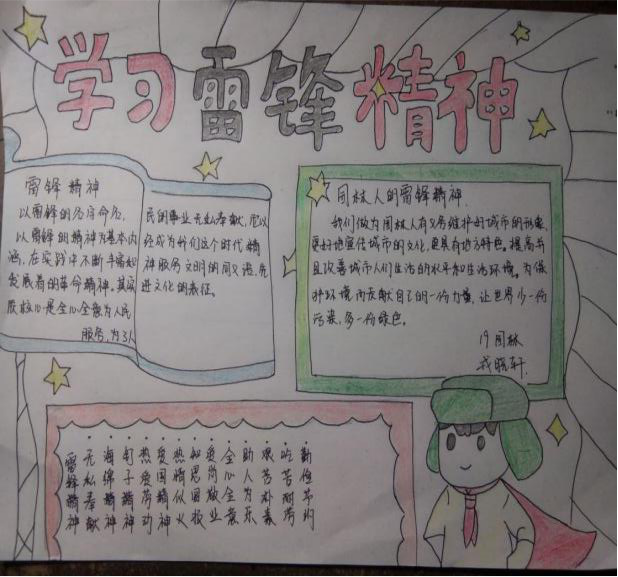 学习雷锋精神
雷锋精神
以雷锋的名字命名,
以雷锋的精神为基本内
涵,在实践中不断丰富和
发展着的革命精神,其实
质核心是全心全意为人民
服务,为了人
民的事业无私奉献,它以
经成为我们这个时代精
神服务文明的同义语,先
进文化的表征。
园林人的雷锋精神
我们做为园林人有义务维护好城市的形象,
更好地宣传城市的文化,更具有地方特色。提高并
且改善城市人们生活的水平和生活环境。为保
护环境而贡献自己的一份力量,让世界少一份
污染,多一份绿色。
19园林
戎晓轩
雷锋精神
·无私奉献
·海绵精神
·钉子精神
·热爱劳动
·爱国精神
·热情似火
·知恩图报
·爱岗敬业
·全心全意
·助人为乐
·艰苦朴素
·吃苦耐劳
·勤俭节约